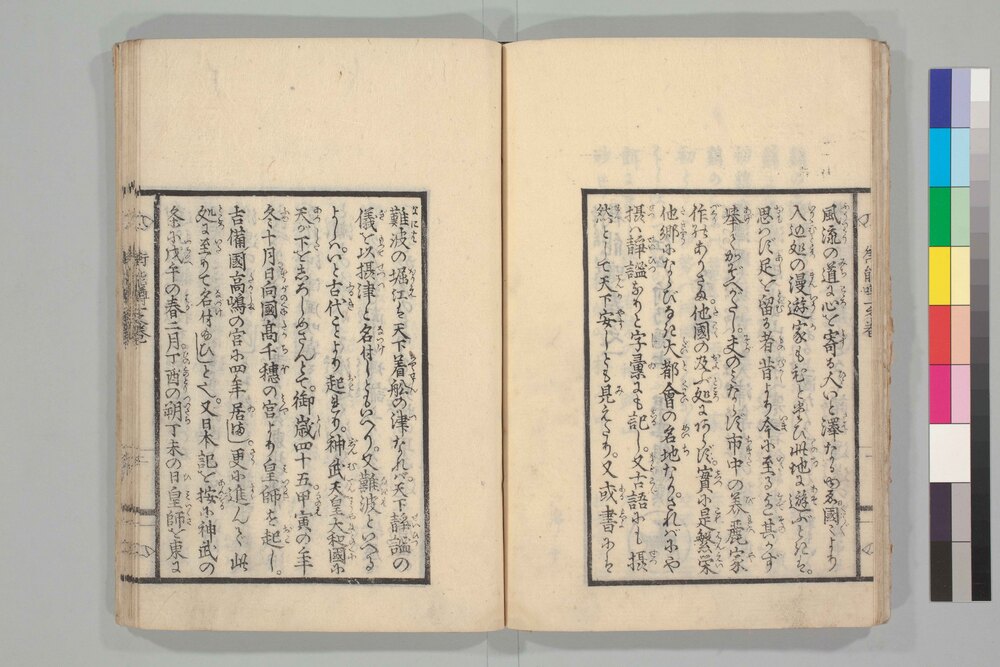 風流の道に心を寄る人いと澤なるゆゑ國〻より
入込処の漫遊家もむと串ひ此地に遊ぶときは。
思はず足を留る者昔より今に至る其かず
挙てかぞへがたし。夫のみならず市中の美麗家
作のありさま。他國の及ぶ処にあらず。實に是繁栄
他郷にならびなき大都會の名地なり。されバにや
摂ハ靜謐なりと字彙にも記し。又古語にも摂
然として天下安しとも見えたり。又或書には
難波の堀江は天下着舩の津なれバ天下靜謐の
儀を以摂津と名付しともいへり。又難波といへる
よしハいと古代ことより起れり。神武天皇大和國に
天が下をしろしめさんとて。御歳四十五甲寅の年
冬十月日向國高千穂の宮より皇師を起し。
吉備國高嶋の宮に四年居ましし更に進んで此
処に至りて名付給ひしとぞ。又日本記を按に神武の
条に戊午の春二月丁酉の朔丁未の日皇師を東に